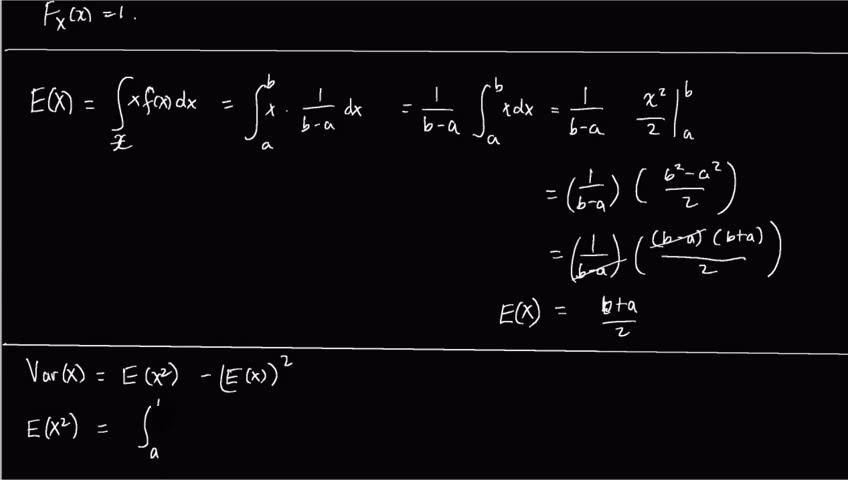 F_X(x) = 1.
E(X) = ∫_𝒳 x f(x) dx = ∫_a^b x · 1/(b-a) dx = 1/(b-a) ∫_a^b x dx = 1/(b-a) x²/2 |_a^b
= (1/(b-a)) ((b²-a²)/2)
= (1/(b-a)) ((b-a)(b+a)/2)
E(X) = (b+a)/2
Var(X) = E(X²) - (E(X))²
E(X²) = ∫_a